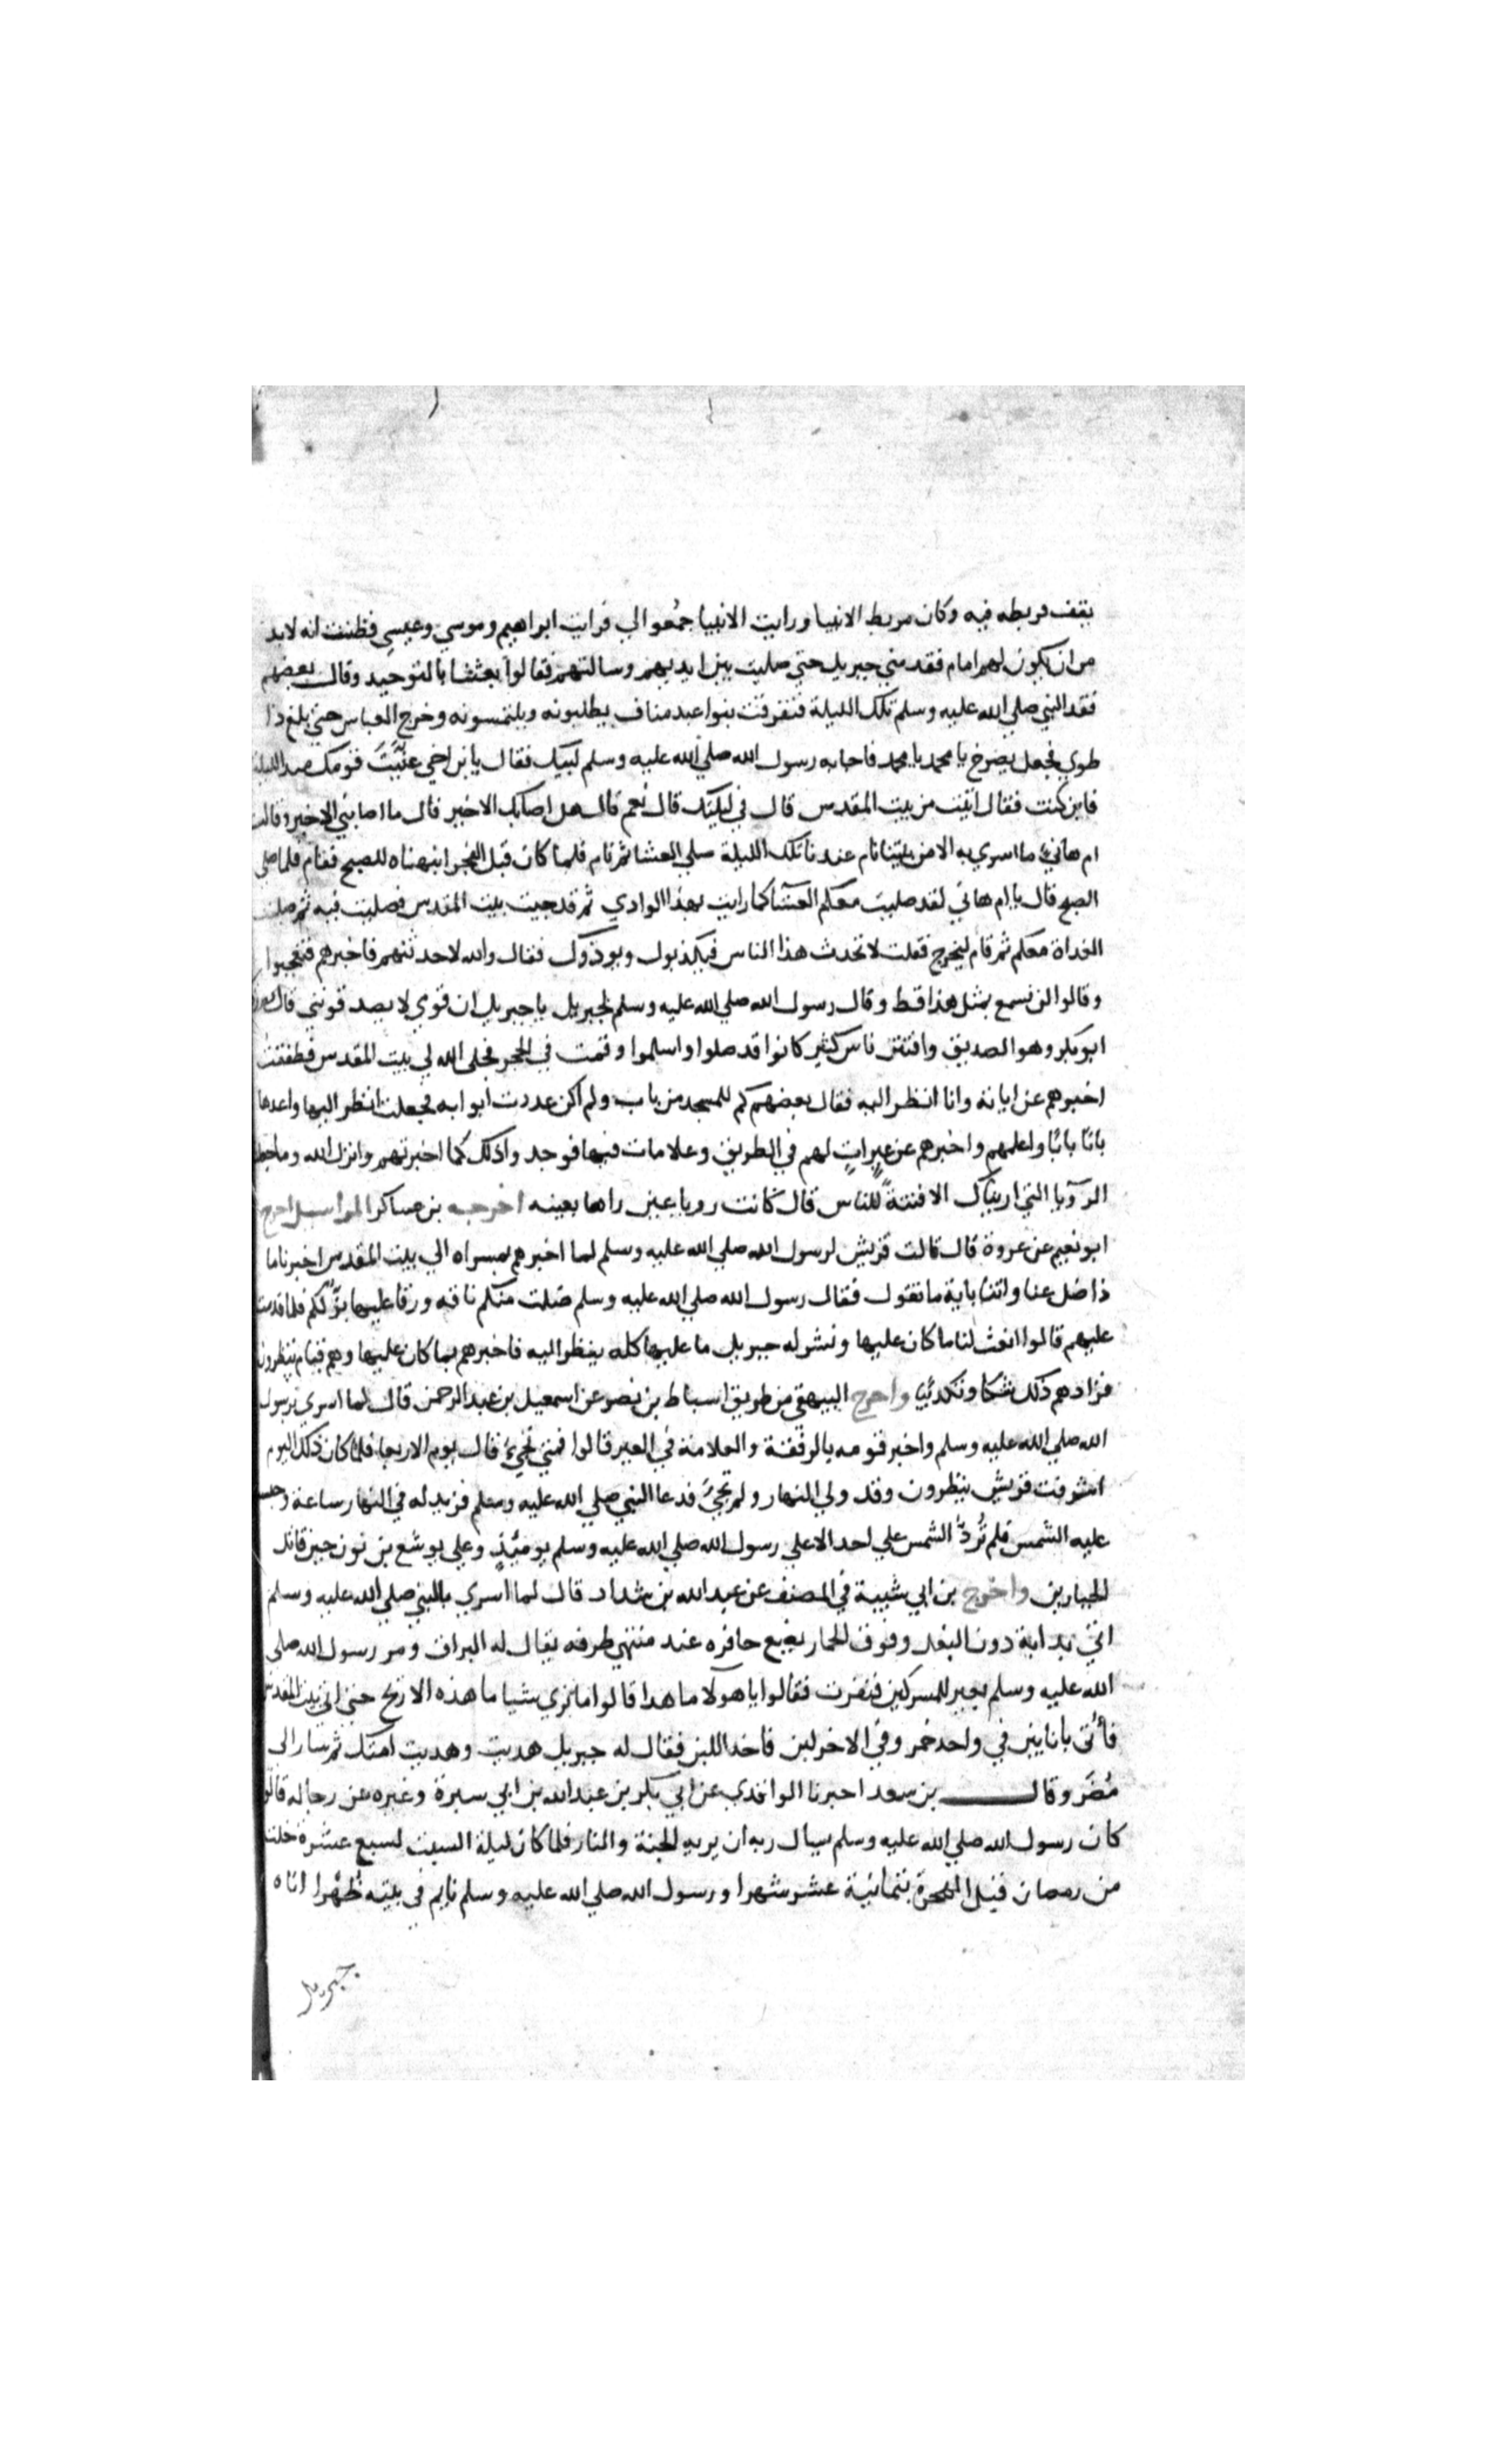 يقف فربطه فيه وكان مربط الانبيا ورايت الانبيا جمعوا لي فرايت ابراهيم وموسي وعيسي فظننت انه لابد
من ان يكون لهم امام فقدمني جبريل حتي صليت بين ايديهم وسالتهم فقالوا بعثنا بالتوحيد وقال بعضهم
فقد النبي صلي الله عليه وسلم تلك الليلة فتفرقت بنوا عبد مناف يطلبونه ويلتمسونه وخرج العباس حتي بلغ ذا
طوي فجعل يصرخ يا محمد يا محمد فاجابه رسول الله صلي الله عليه وسلم لبيك فقال يا بن اخي عنيت قومك منذ الليلة
فاين كنت فقال اتيت من بيت المقدس قال في ليلتك قال نعم قال هل اصابك الا خير قال ما اصابني الا خير وقالت
ام هاني ما اسري به الا من بيتنا نام عندنا تلك الليلة صلي العشا ثم نام فلما كان قبل الفجر انبهناه للصبح فقام فلما صلي
الصبح قال يا ام هاني لقد صليت معكم العشا كما رايت بهذا الوادي ثم قد جيت بيت المقدس فصليت فيه ثم صليت
الغداة معكم ثم قام ليخرج فقلت لا تحدث هذا الناس فيكذبوك ويوذوك فقال والله لاحدثنهم فاخبرهم فتعجبوا
وقالوا لن نسمع بمثل هذا قط وقال رسول الله صلي الله عليه وسلم لجبريل يا جبريل ان قومي لا يصدقونني قال يصدقك
ابو بكر وهو الصديق وافتتن ناس كثير كانوا قد صلوا واسلموا وقمت في الحجر فجلي الله لي بيت المقدس فطفقت
اخبرهم عن اياته وانا انظر اليه فقال بعضهم كم للمسجد من باب ولم اكن عددت ابوابه فجعلت انظر اليها واعدها
بابا بابا واعلمهم واخبرهم عن عيرات لهم في الطريق وعلامات فيها فوجدوا ذلك كما اخبرتهم وانزل الله وما جعلنا
الرويا التي اريناك الا فتنة للناس قال كانت رويا عين راها بعينه اخرجه بن عساكر المراسيل اخرج
ابو نعيم عن عروة قال قالت قريش لرسول الله صلي الله عليه وسلم لما اخبرهم بمسراه الي بيت المقدس اخبرنا ما
ذا ضل عنا واتنا باية ما تقول فقال رسول الله صلي الله عليه وسلم ضلت منكم ناقة ورقا عليها بز لكم فلما قدمت
عليهم قالوا انعت لنا ما كان عليها ونشر له جبريل ما عليها كله ينظر اليه فاخبرهم بما كان عليها وهم قيام ينظرون
فزادهم ذلك شكا وتكذيبا واخرج البيهقي من طريق اسباط بن نصر عن اسمعيل بن عبد الرحمن قال لما اسري برسول
الله صلي الله عليه وسلم واخبر قومه بالرفقة والعلامة في العير قالوا فمتي تجيء قال يوم الاربعا فلما كان ذلك اليوم
اشرفت قريش ينظرون وقد ولي النهار ولم تجيء فدعا النبي صلي الله عليه وسلم فزيد له في النهار ساعة وحبست
عليه الشمس فلم تُرد الشمس علي احد الا علي رسول الله صلي الله عليه وسلم يوميذ وعلي يوشع بن نون حين قاتل
الجبارين واخرج بن ابي شيبة في المصنف عن عبد الله بن شداد قال لما اسري بالنبي صلي الله عليه وسلم
اتي بدابة دون البغل وفوق الحمار يضع حافره عند منتهي طرفه يقال له البراق ومر رسول الله صلي
الله عليه وسلم بعير للمسركين فنفرت فقالوا يا هولا ما هذا قالوا ما نري شيا ما هذه الا ريح حتي اتي بيت المقدس
فأتى بأنايين في واحد خمر وفي الاخر لبن فاخذ اللبن فقال له جبريل هديت وهديت امتك ثم سار الى
مُضَر وقال بن سعد اخبرنا الواقدي عن ابي بكر بن عبد الله بن ابي سبرة وغيره عن رجاله قالوا
كان رسول الله صلي الله عليه وسلم سيال ربه ان يريه الجنة والنار فلما كان ليلة السبت لسبع عشرة خلت
من رمضان قبل الهجرة بثمانية عشر شهرا ورسول الله صلي الله عليه وسلم نايم في بيته ظهرا اتاه
جبريل